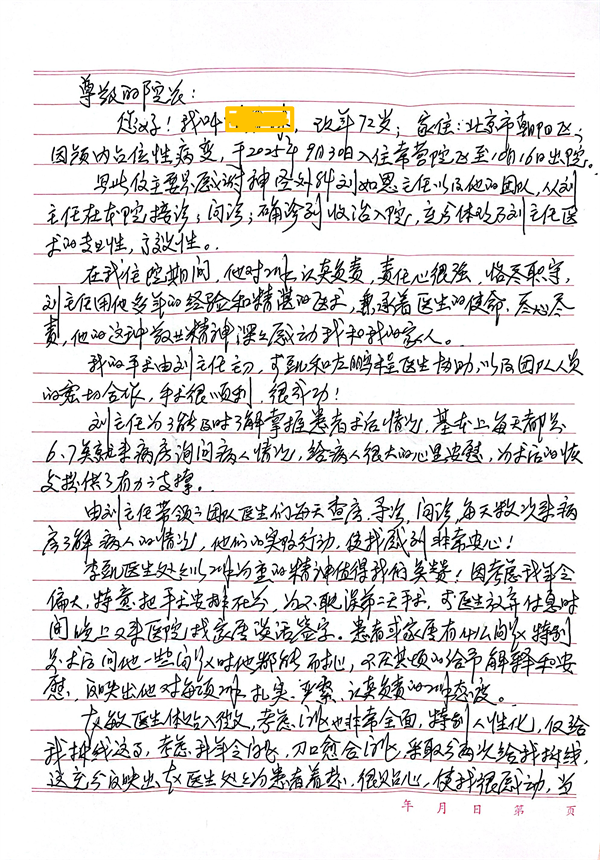 尊敬的院长：
您好！我叫 ，现年72岁；家住：北京市朝阳区，
因颅内占位性病变，于2025年9月30日入住常营院区至10月16日出院。
在此我主要感谢神经外科刘如恩主任以及他的团队，从刘
主任在本院接诊；问诊；确诊到收治入院，充分体现刘主任医
术的专业性，高效性。
在我住院期间，他对工作认真负责，责任心很强，恪尽职守，
刘主任用他多年的经验和精湛的医术，秉承着医生的使命，尽心尽
责，他的这种敬业精神深深感动我和我的家人。
我的手术由刘主任主刀，李凯和左鹏程医生协助，以及团队人员
的密切合作，手术很顺利，很成功！
刘主任为了能及时了解掌握患者术后情况，基本上每天都会
6、7点就来病房询问病人情况，给病人很大的心理安慰，为术后的恢
复提供了有力支撑。
由刘主任带领的团队医生们每天查房、寻诊，问诊，每天数次来病
房了解病人的情况，他们的实际行动，使我感到非常安心！
李凯医生处处以工作为重的精神值得我们点赞！因考虑我年令
偏大，特意把手术安排在 ，为不耽误第二天手术，李医生放弃休息时
间晚上又来医院找家属谈话签字。患者或家属有什么问题特别
是术后问他一些问题时他都能耐心，不厌其烦的给予解释和安
慰，反映出他对每项工作扎实、严紧、认真负责的工作态度。
 医生体贴入微，考虑问题也非常全面，特别人性化，仅给
我拆线这事，考虑我年令问题，刀口愈合问题，采取分两次给我拆线，
这充分反映出 医生处处为患者着想，很贴心，使我很感动，为
年 月 日 第 页